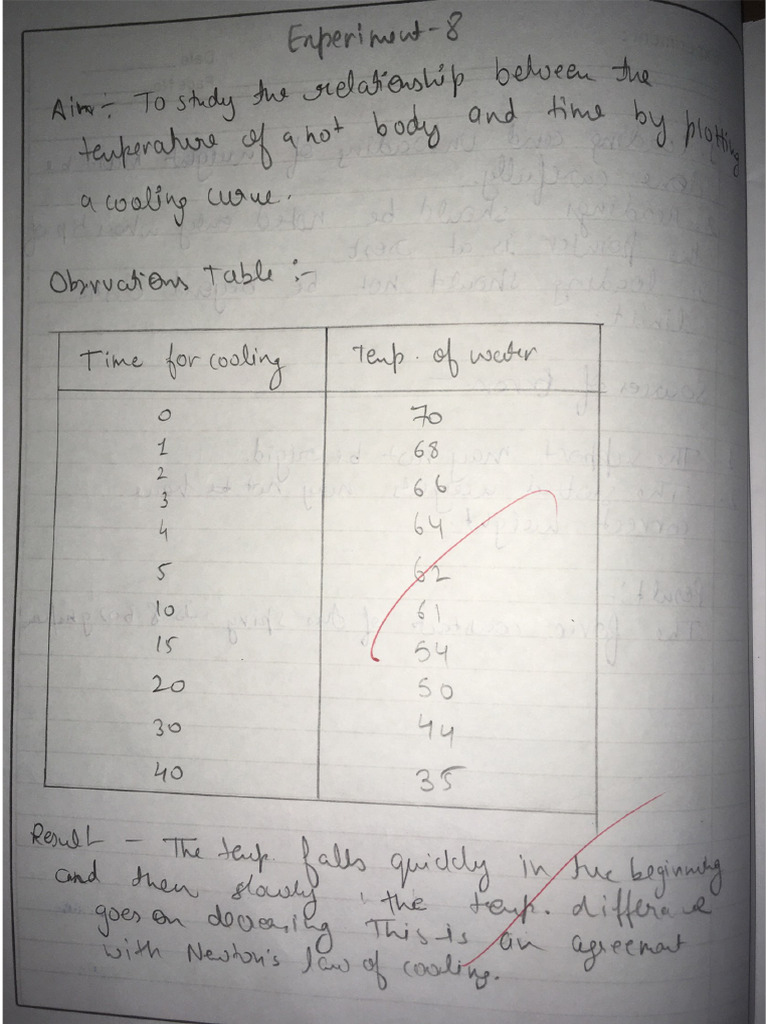 Experiment-8
Aim:- To study the relationship between the
temperature of a hot body and time by plotting
a cooling curve.
Obsrvations Table :-
Time for cooling Temp. of water
0 70
1 68
2 66
3
4 64
5 62
10 61
15 54
20 50
30 44
40 35
Result - The temp. falls quickly in the beginning
and then slowly, the temp. difference
goes on decreasing This is an agreement
with Newton's law of cooling.